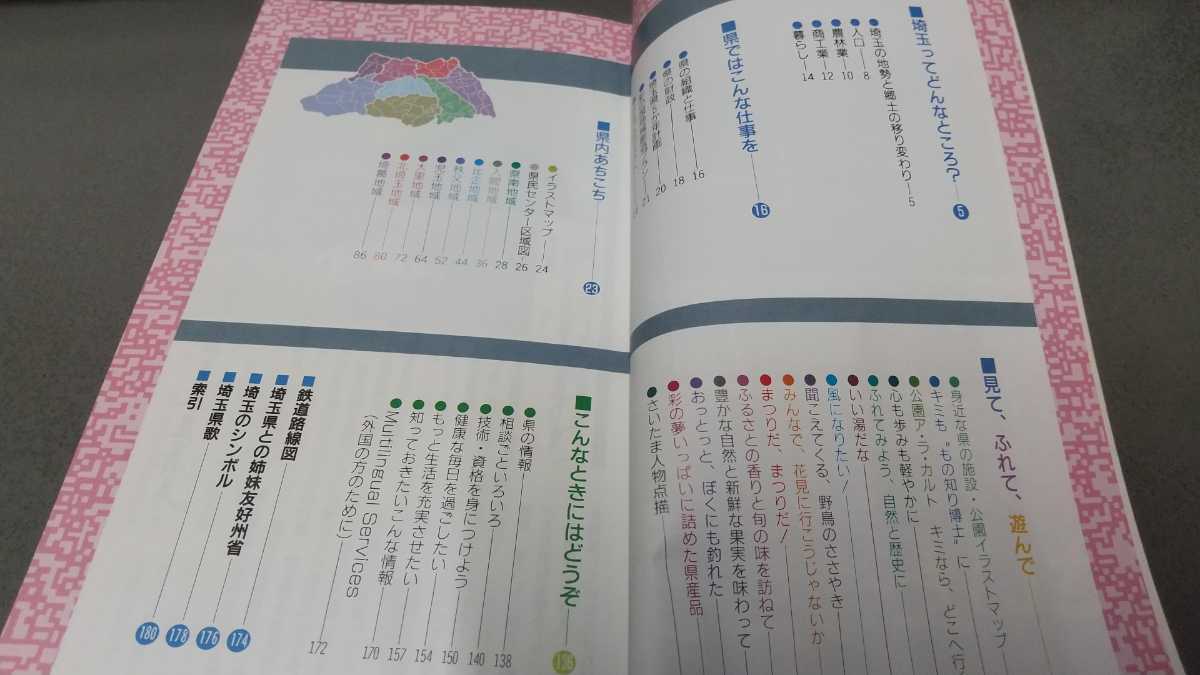 ■埼玉ってどんなところ?―5
●埼玉の地勢と郷土の移り変わり―5
●人口―8
●農林業―10
●商工業―12
●暮らし―14
■県ではこんな仕事を―16
●県の組織と仕事―16
●県の財政―18
20
21
■県内あちこち―23
●イラストマップ―24
●県民センター区域図―26
●県南地域―28
●入間地域―36
●比企地域―44
●秩父地域―52
●児玉地域―64
●大里地域―72
●北埼玉地域―80
●埼葛地域―86
■見て、ふれて、遊んで
●身近な県の施設・公園イラストマップ
●キミも“もの知り博士”に
●公園ア・ラ・カルト キミなら、どこへ行
●心も歩みも軽やかに
●ふれてみよう、自然と歴史に
●いい湯だな
●風になりたい!
●聞こえてくる、野鳥のささやき
●みんなで、花見に行こうじゃないか
●まつりだ、まつりだ!
●ふるさとの香りと旬の味を訪ねて
●豊かな自然と新鮮な果実を味わって
●おっとっと、ぼくにも釣れた
●彩の夢いっぱいに詰めた県産品
●さいたま人物点描
■こんなときにはどうぞ
●県の情報―138
●相談ごといろいろ―140
●技術・資格を身につけよう―150
●健康な毎日を過ごしたい―154
●もっと生活を充実させたい―157
●知っておきたいこんな情報―170
●Multilingual Services
(外国の方のために)―172
■鉄道路線図―174
■埼玉県との姉妹友好州省―176
■埼玉のシンボル―178
■埼玉県歌―180
■索引